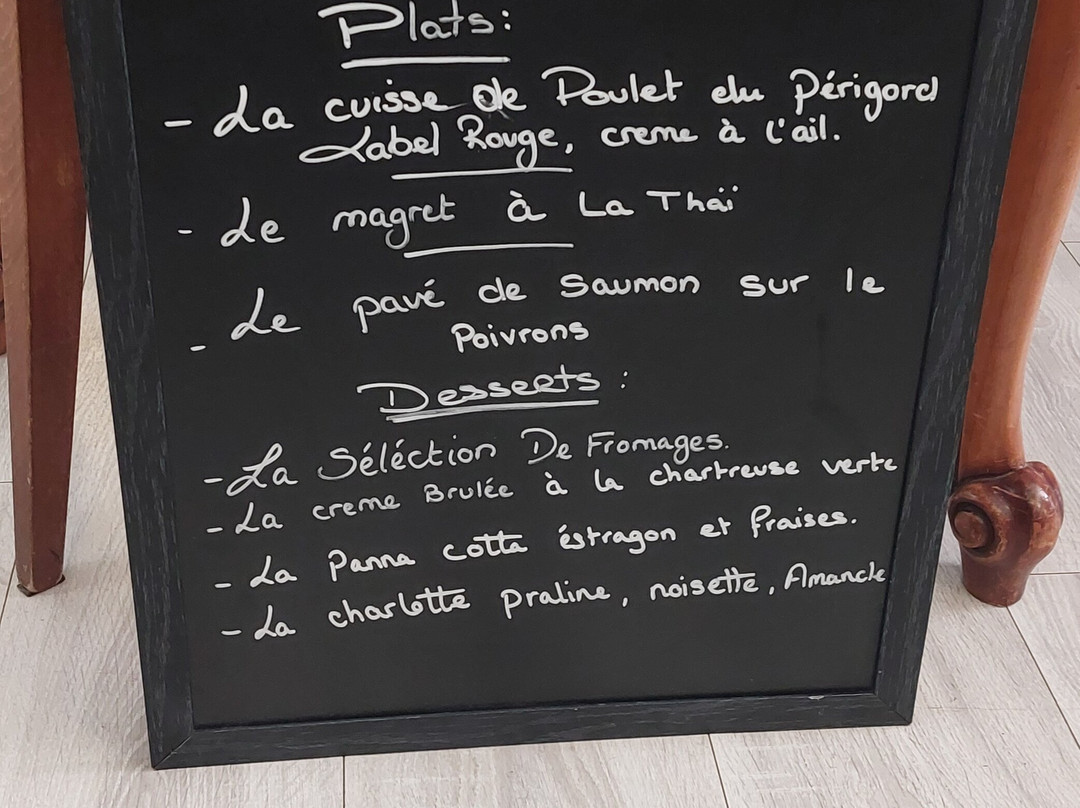 Plats:
- La cuisse de Poulet du Périgord
Label Rouge, creme à l'ail.
- Le magret à La Thaï
- Le pavé de Saumon sur le
Poivrons
Desserts :
- La Séléction De Fromages.
- La creme Brulée à la chartreuse verte
- La Panna cotta éstragon et fraises.
- La charlotte praline, noisette, Amande